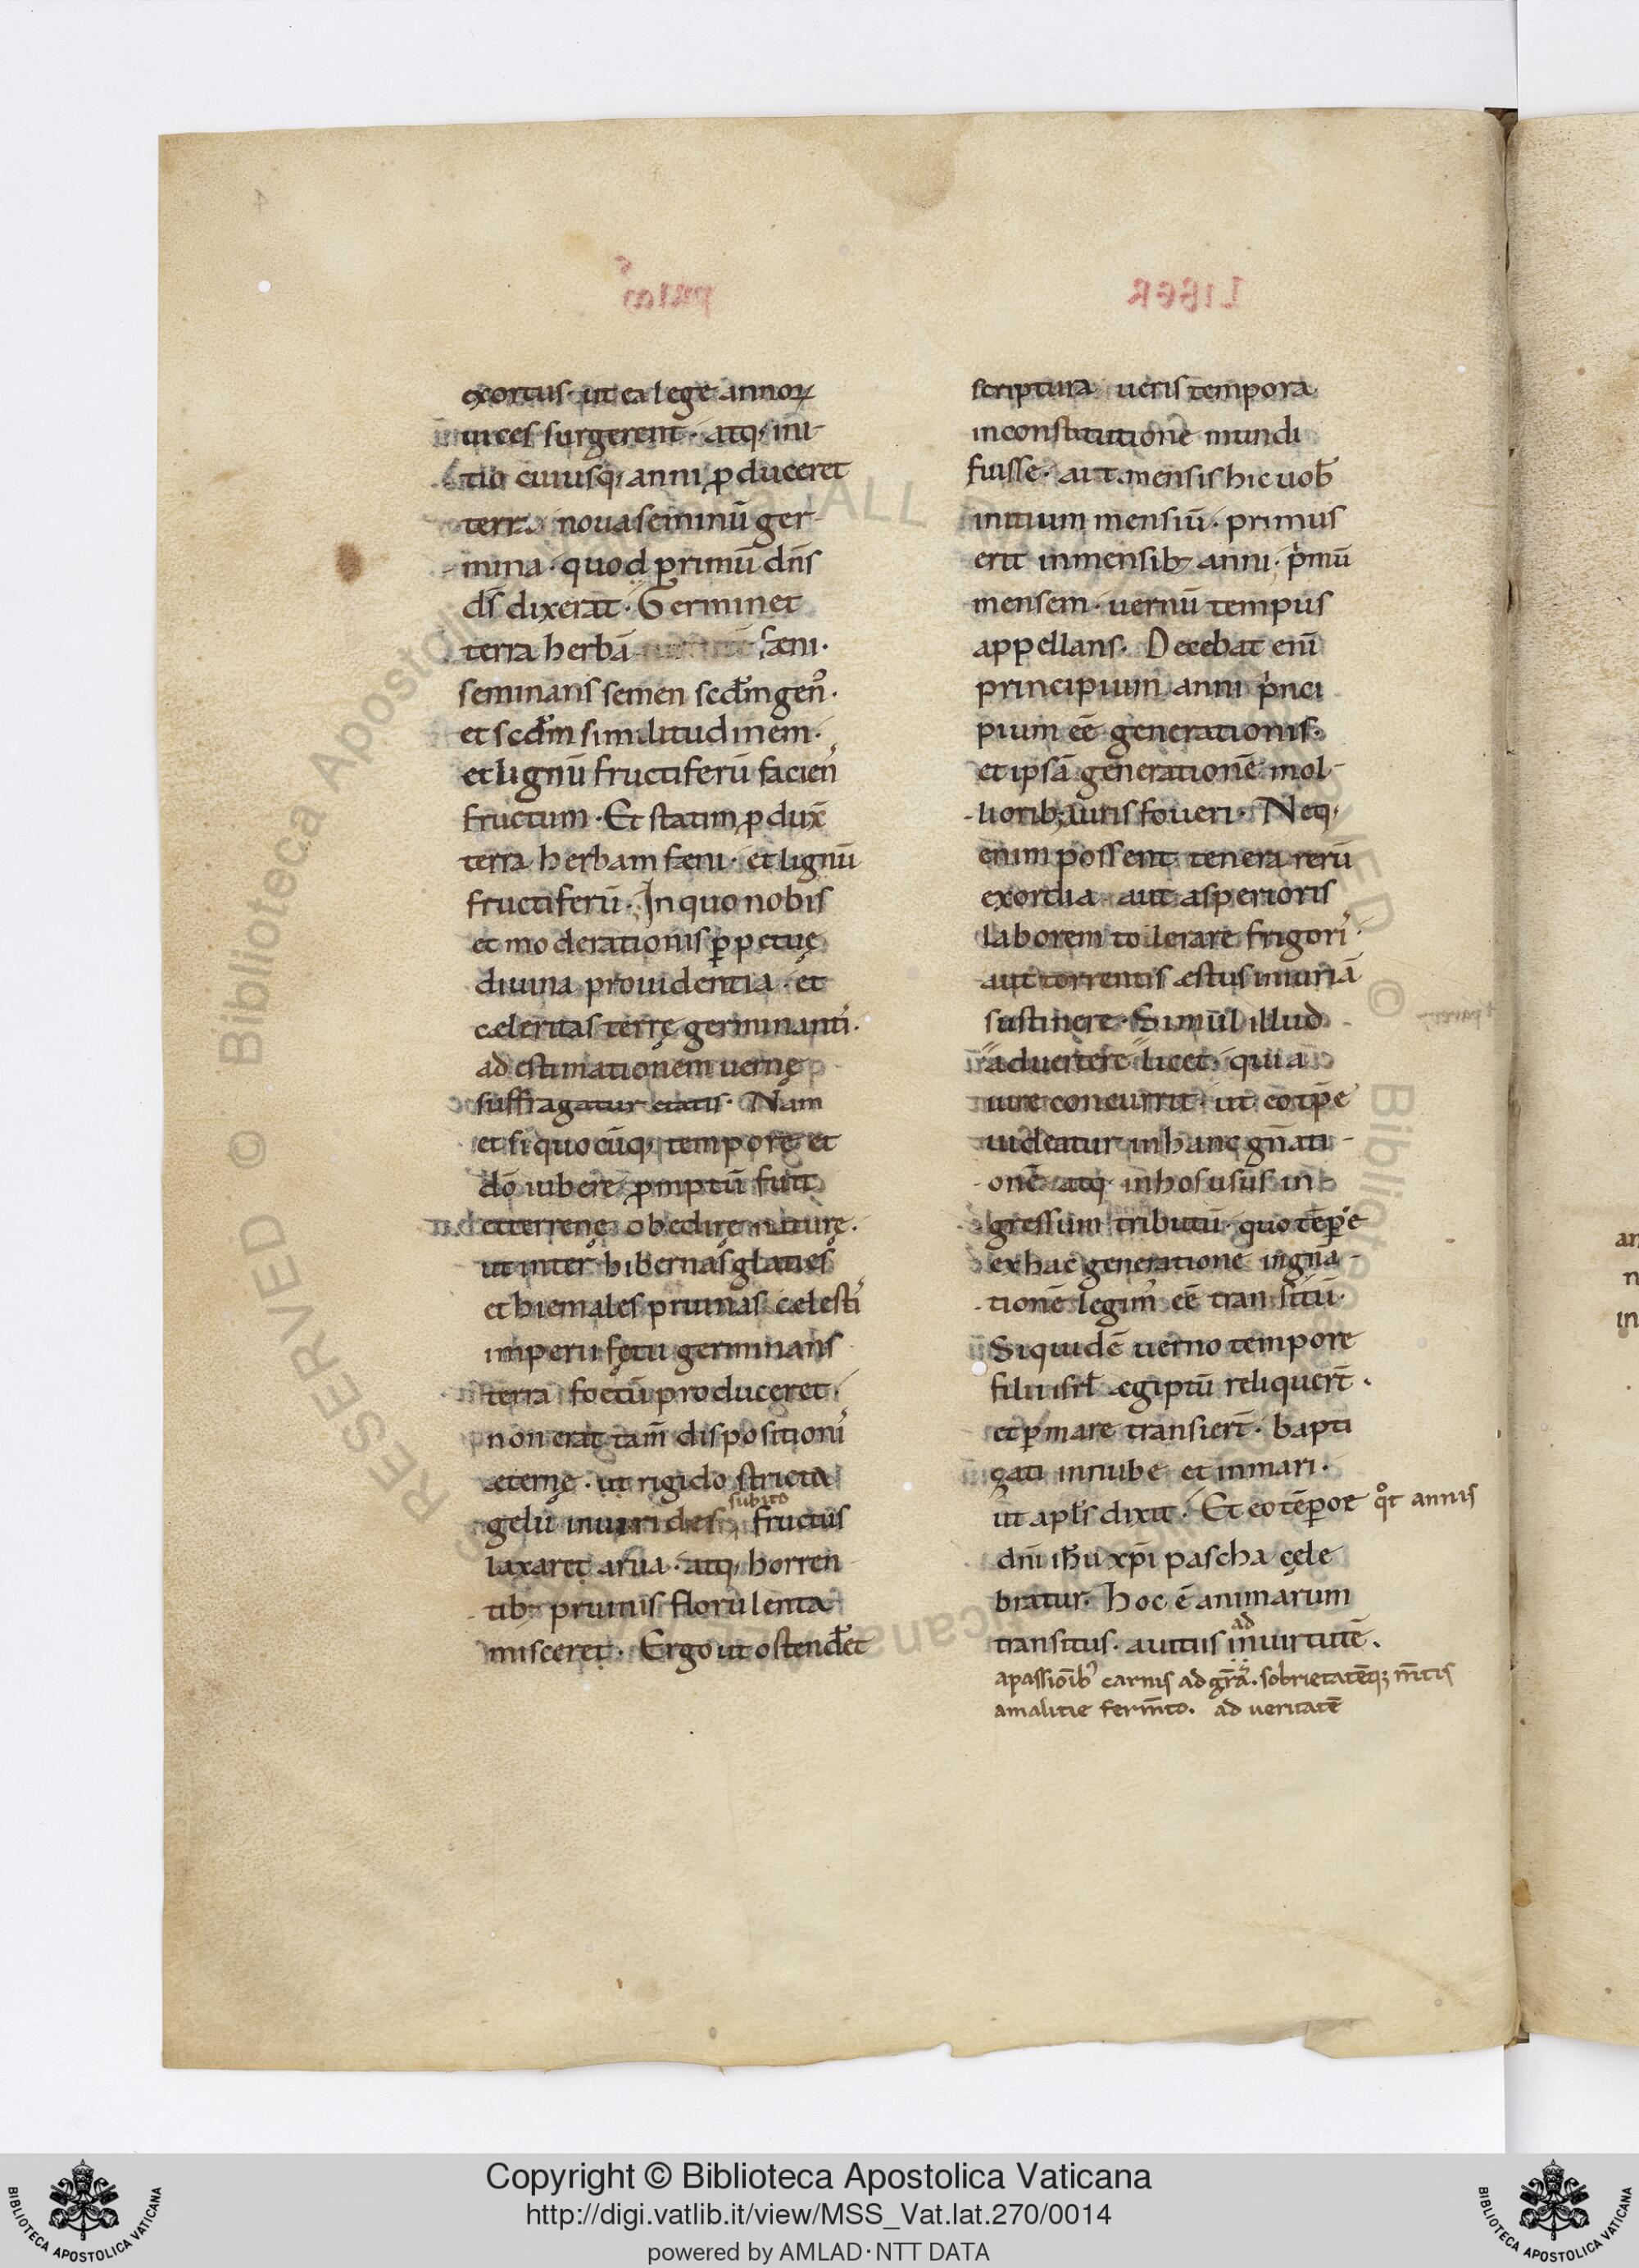 exortus· ut ea lege annoꝝ
uices surgerent· atq; ini-
tio cuiusq; anni ꝓduceret
terra noua seminū ger-
mina· quod primū dn̄s
ds̄ dixerat· Germinet
terra herbā fæni·
seminans semen scd̄m gen᷒·
et scd̄m similitudinem·
et lignū fructiferū facien᷒
fructum· Et statim ꝓdux̄
terra herbam fæni· et lignū
fructiferū· In quo nobis
et moderationis ꝑpetuę
diuina prouidentia· et
cæleritas terrę germinanti᷒·
ad estimationem uernę
suffragatur etatis· Nam
etsi quocūq; tempore et
dō iubere ꝓmptū fuit
et terrenę obedire naturę·
ut inter hibernas glacies
et hiemales pruinas cælesti᷒
imperii fętu germinans
terra foetū produceret·
non erat tam̄ dispositioni᷒
æternę· ut rigido stricta
subito
gelu in uirides fructus
laxaret arua· atq; horren
tib; pruinis florulenta
misceret· Ergo ut ostenderet
LIBER
scriptura ueris tempora
in constitutione mundi
fuisse· ait· mensis hic uob̄
initium mensiū· primus
erit in mensib; anni· pͥmū
mensem· uernū tempus
appellans· Decebat enī
principium anni pͥnci
pium eē generationis·
et ipsā generationē mol-
liorib; auris foueri· Neq;
enim possent tenera rerū
exordia aut asperioris
laborem tollerare frigori᷒·
aut torrentis æstus iniuriā
sustinere· Simul illud
aduertere licet· quia
iure concurrit· ut eo tp̄e
uideatur in hanc gn̄ati-
onē atq; in hos usus in
gressum tributū· quo tēꝑe
ex hac generatione in gn̄a-
tionē legim᷒ eē transitū·
Siquidē uerno tempore
filii isrl̄ ægiptū reliquer̄t·
et ꝑ mare transier̄t· bapti
zati in nube et in mari·
ut apl̄s dixit· Et eo tēꝑore qͦt annis
dn̄i ih̄u xp̄i pascha cele
bratur· hoc ē animarum
ad
transitus· a uitiis in uirtutē·
a passioīb᷒ carnis ad gr̄ā· sobrietatēq; m̄tis
a malitie ferm̄to· ad ueritatē
Copyright © Biblioteca Apostolica Vaticana
http://digi.vatlib.it/view/MSS_Vat.lat.270/0014
powered by AMLAD·NTT DATA
BIBLIOTECA APOSTOLICA VATICANA
BIBLIOTECA APOSTOLICA VATICANA